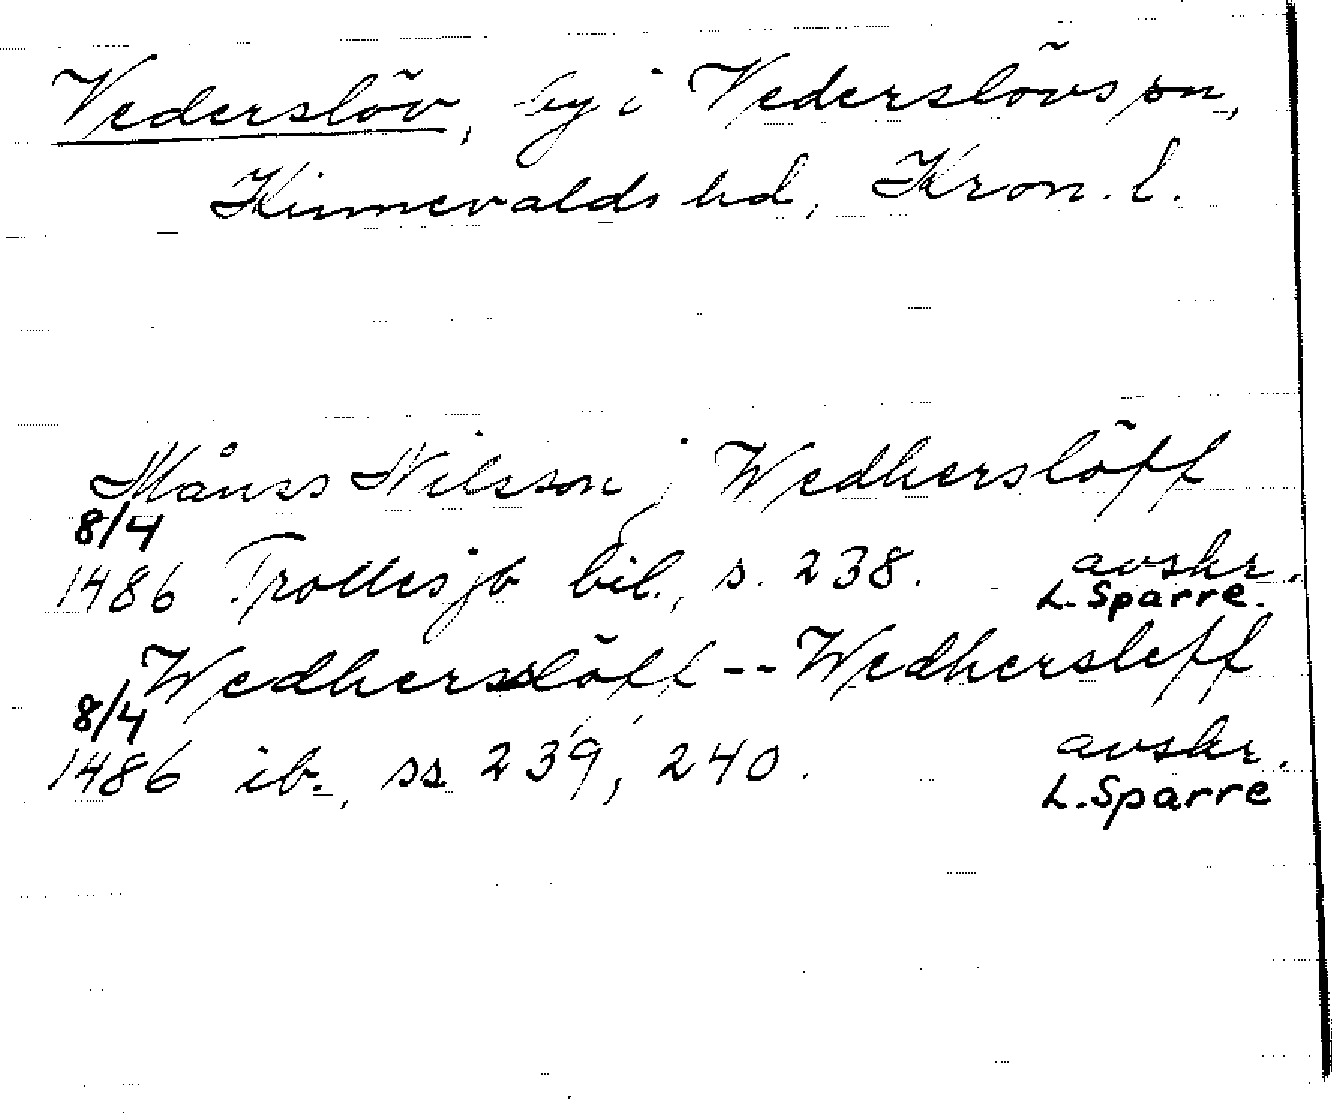 Vederslöv, by i Vederslövs sn,
Kinnevalds hd, Kron. l.
Månss Nilsson j Wedherslöff
8/4
1486 Trollesjb bil., s. 238. avskr.
L. Sparre.
Wedherslöff -- Wedhersleff
8/4
1486 ib., ss 239, 240. avskr.
L. Sparre